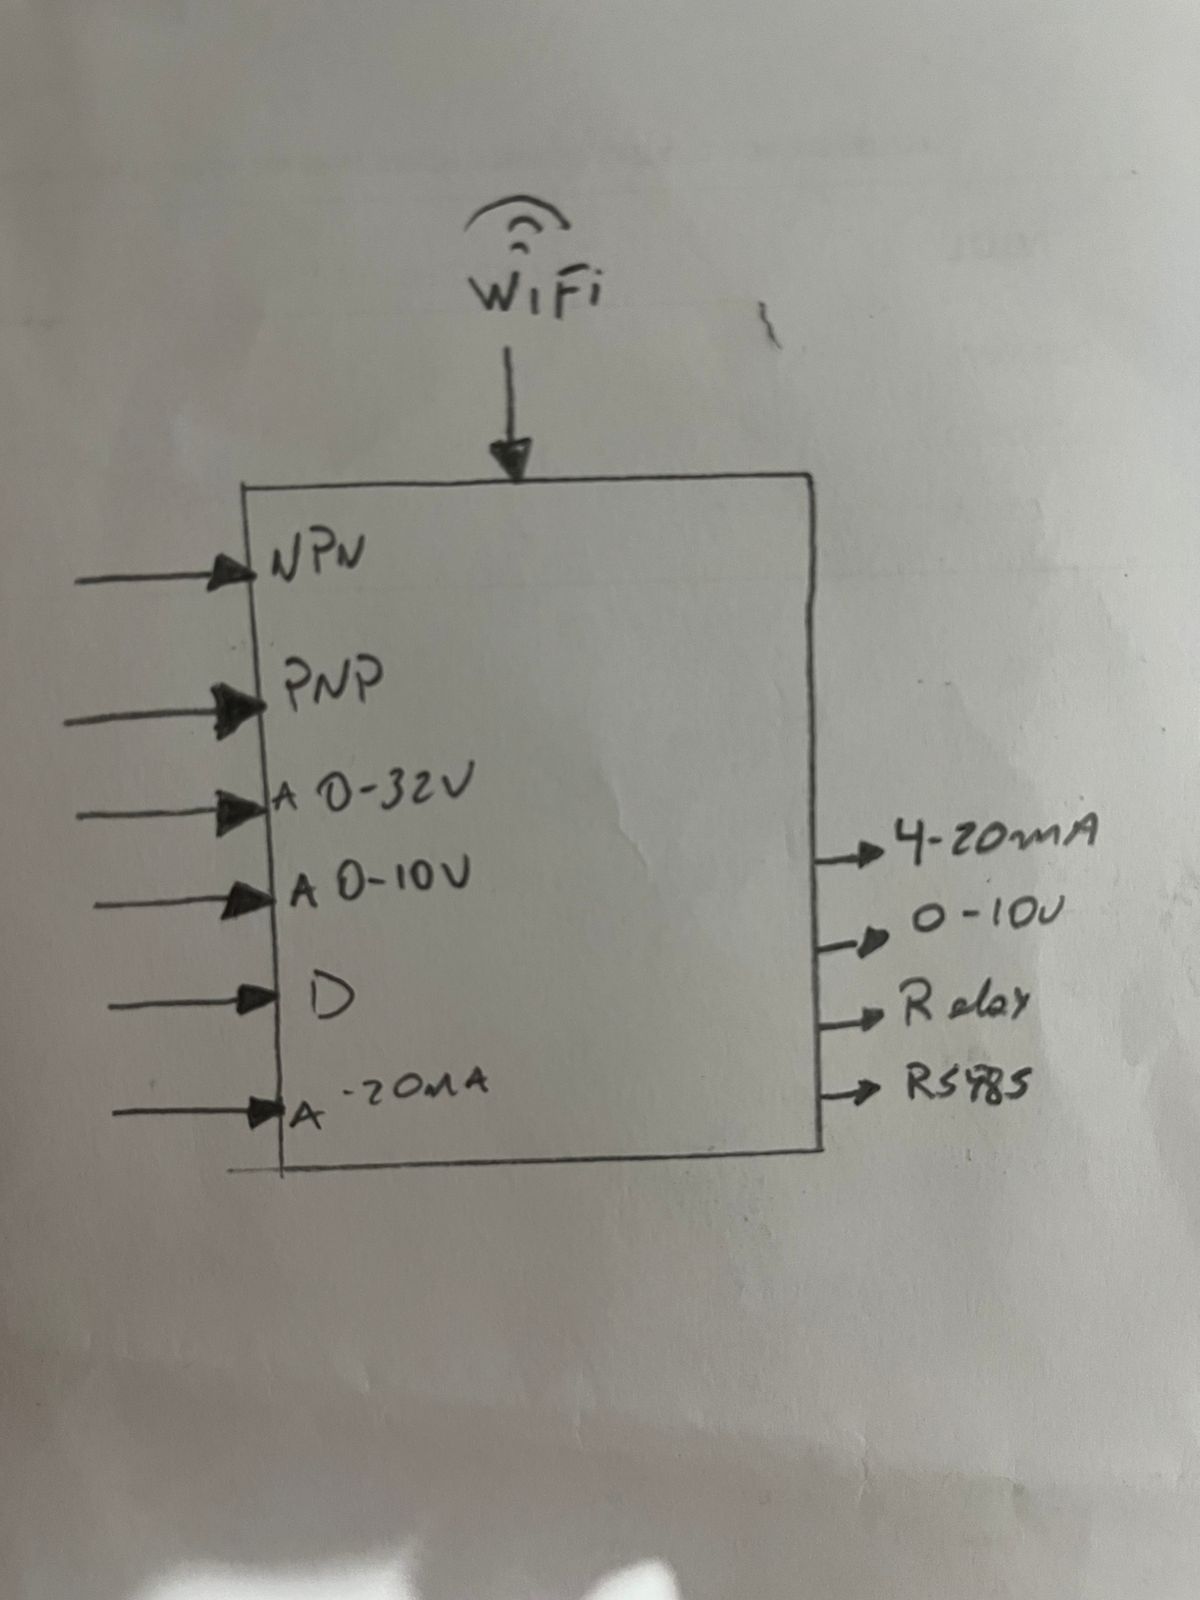 WiFi
NPN
PNP
A 0-32V
A 0-10V
D
A -20mA
4-20mA
0-10V
Relay
RS485